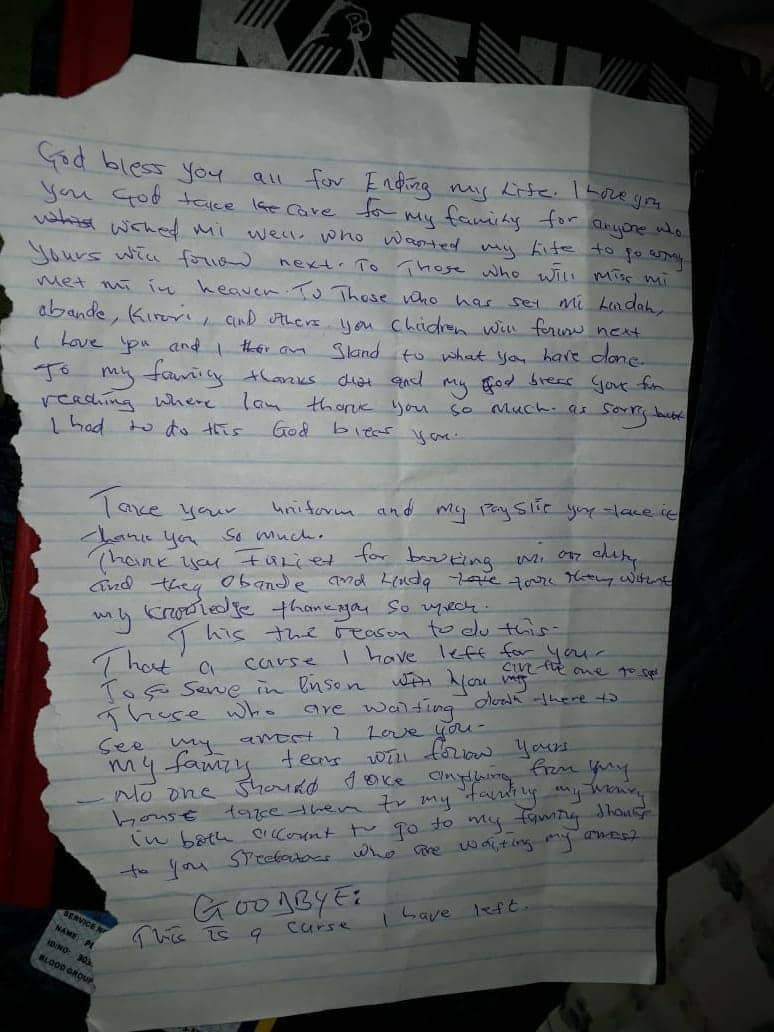 KASUKU
God bless you all for Ending my Life. I Love you
you God take care for my family for anyone who
wished mi well. who wanted my Life to go away
Yours will follow next. To Those who will miss mi
met mi in heaven. To Those who has set mi Lindah,
abande, Kirori, and others you children will follow next
I Love you and I am gland to what you have done.
To my family thanks and my God bless you for
reading where Iam thank you so much. as sorry but
I had to do this God bless you.
Take your uniform and my Payslip you take it
thank you so much.
Thank you for mi on duty
and they Obande and Linda took them without
my knowledge thankyou so much.
This the reason to do this.
That a curse I have left for you.
To serve in Prison you my
give the one to
Those who are waiting down there to
see my arrest I Love you.
my family tears will follow yours
- No one should take anything from my
house take them to my family my money
in both account to go to my family thanks
to you Spectators who are waiting my arrest
GOODBYE:
This is a curse I have left.
SERVICE N
NAME: P
ID/NO: 303
BLOOD GROUP